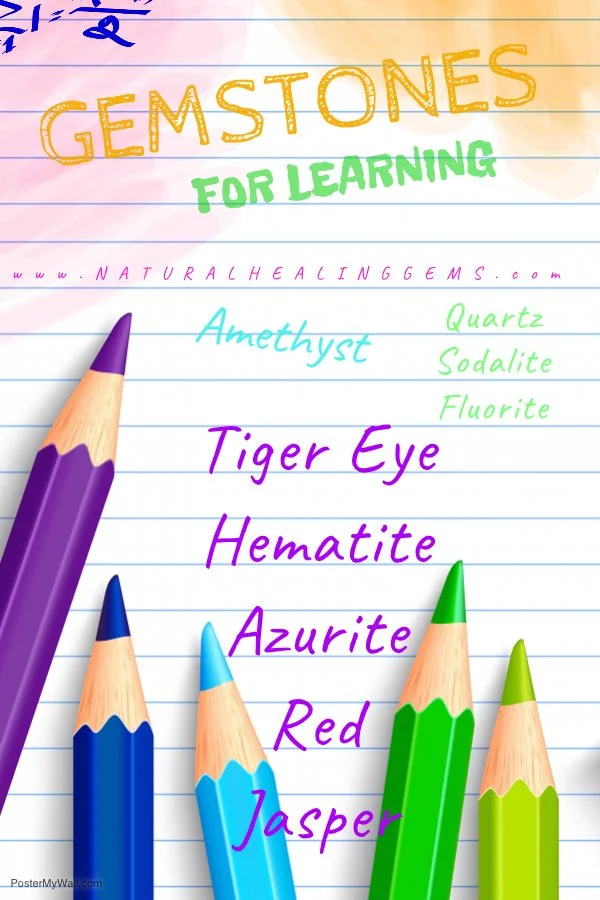 GEMSTONES
FOR LEARNING
www.NATURALHEALINGGEMS.com
Amethyst
Quartz
Sodalite
Fluorite
Tiger Eye
Hematite
Azurite
Red
Jasper
PosterMyWall.com